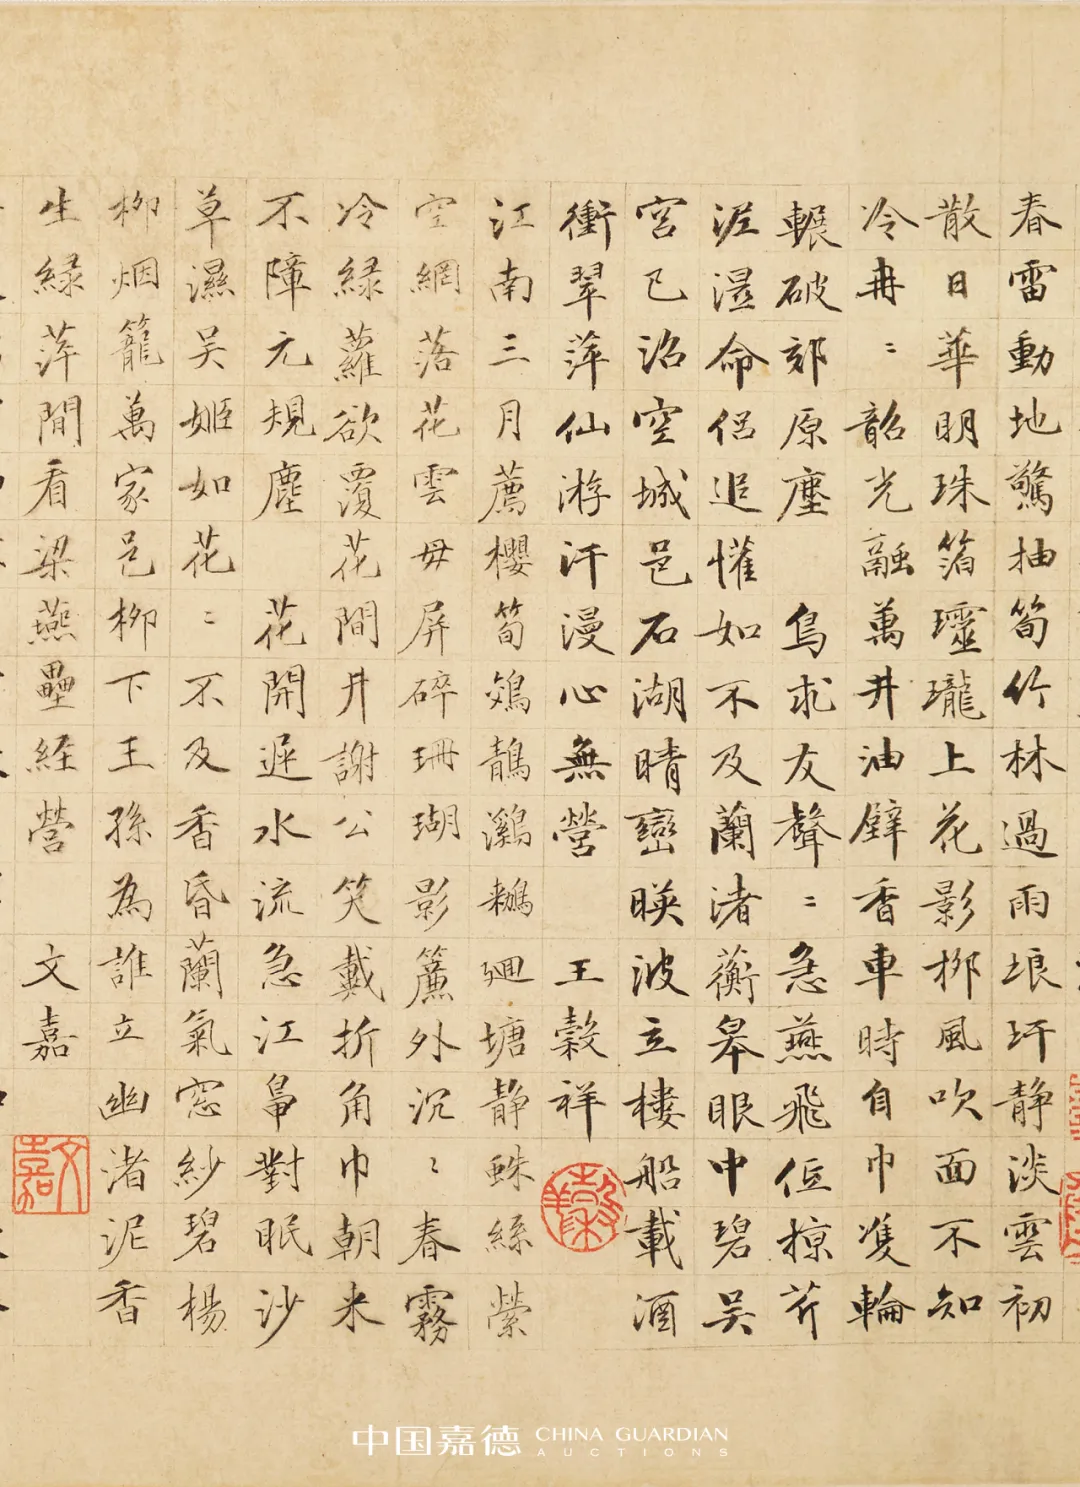 春雷動地驚抽筍竹林過雨埌圩静淡雲初
散日華明珠箔瓏上花影柳風吹面不知
冷冉〻韶光融萬井油壁香車時自巾隻輪
輾破郊原塵 鳥求友聲〻急燕飛低掠芹
泥濕命侣追懽如不及蘭渚蘅皋眼中碧吴
宫已沼空城邑石湖晴巒暎波立樓船載酒
衝翠萍仙游汗漫心無營 王榖祥
江南三月薦櫻筍鵁鶄鸂鶒廻塘静絲縈
空網落花雲母屏碎珊瑚影簾外沉〻春霧
冷緑蘿欲覆花間井謝公笑戴折角巾朝来
不障元規塵 花開遅水流急江鼂對眠沙
草濕吴姬如花〻不及香昏蘭氣窓紗碧楊
柳烟籠萬家邑柳下王孫為誰立幽渚泥香
生緑萍間看梁燕壘経營 文嘉
文嘉
中国嘉德 CHINA GUARDIAN AUCTIONS